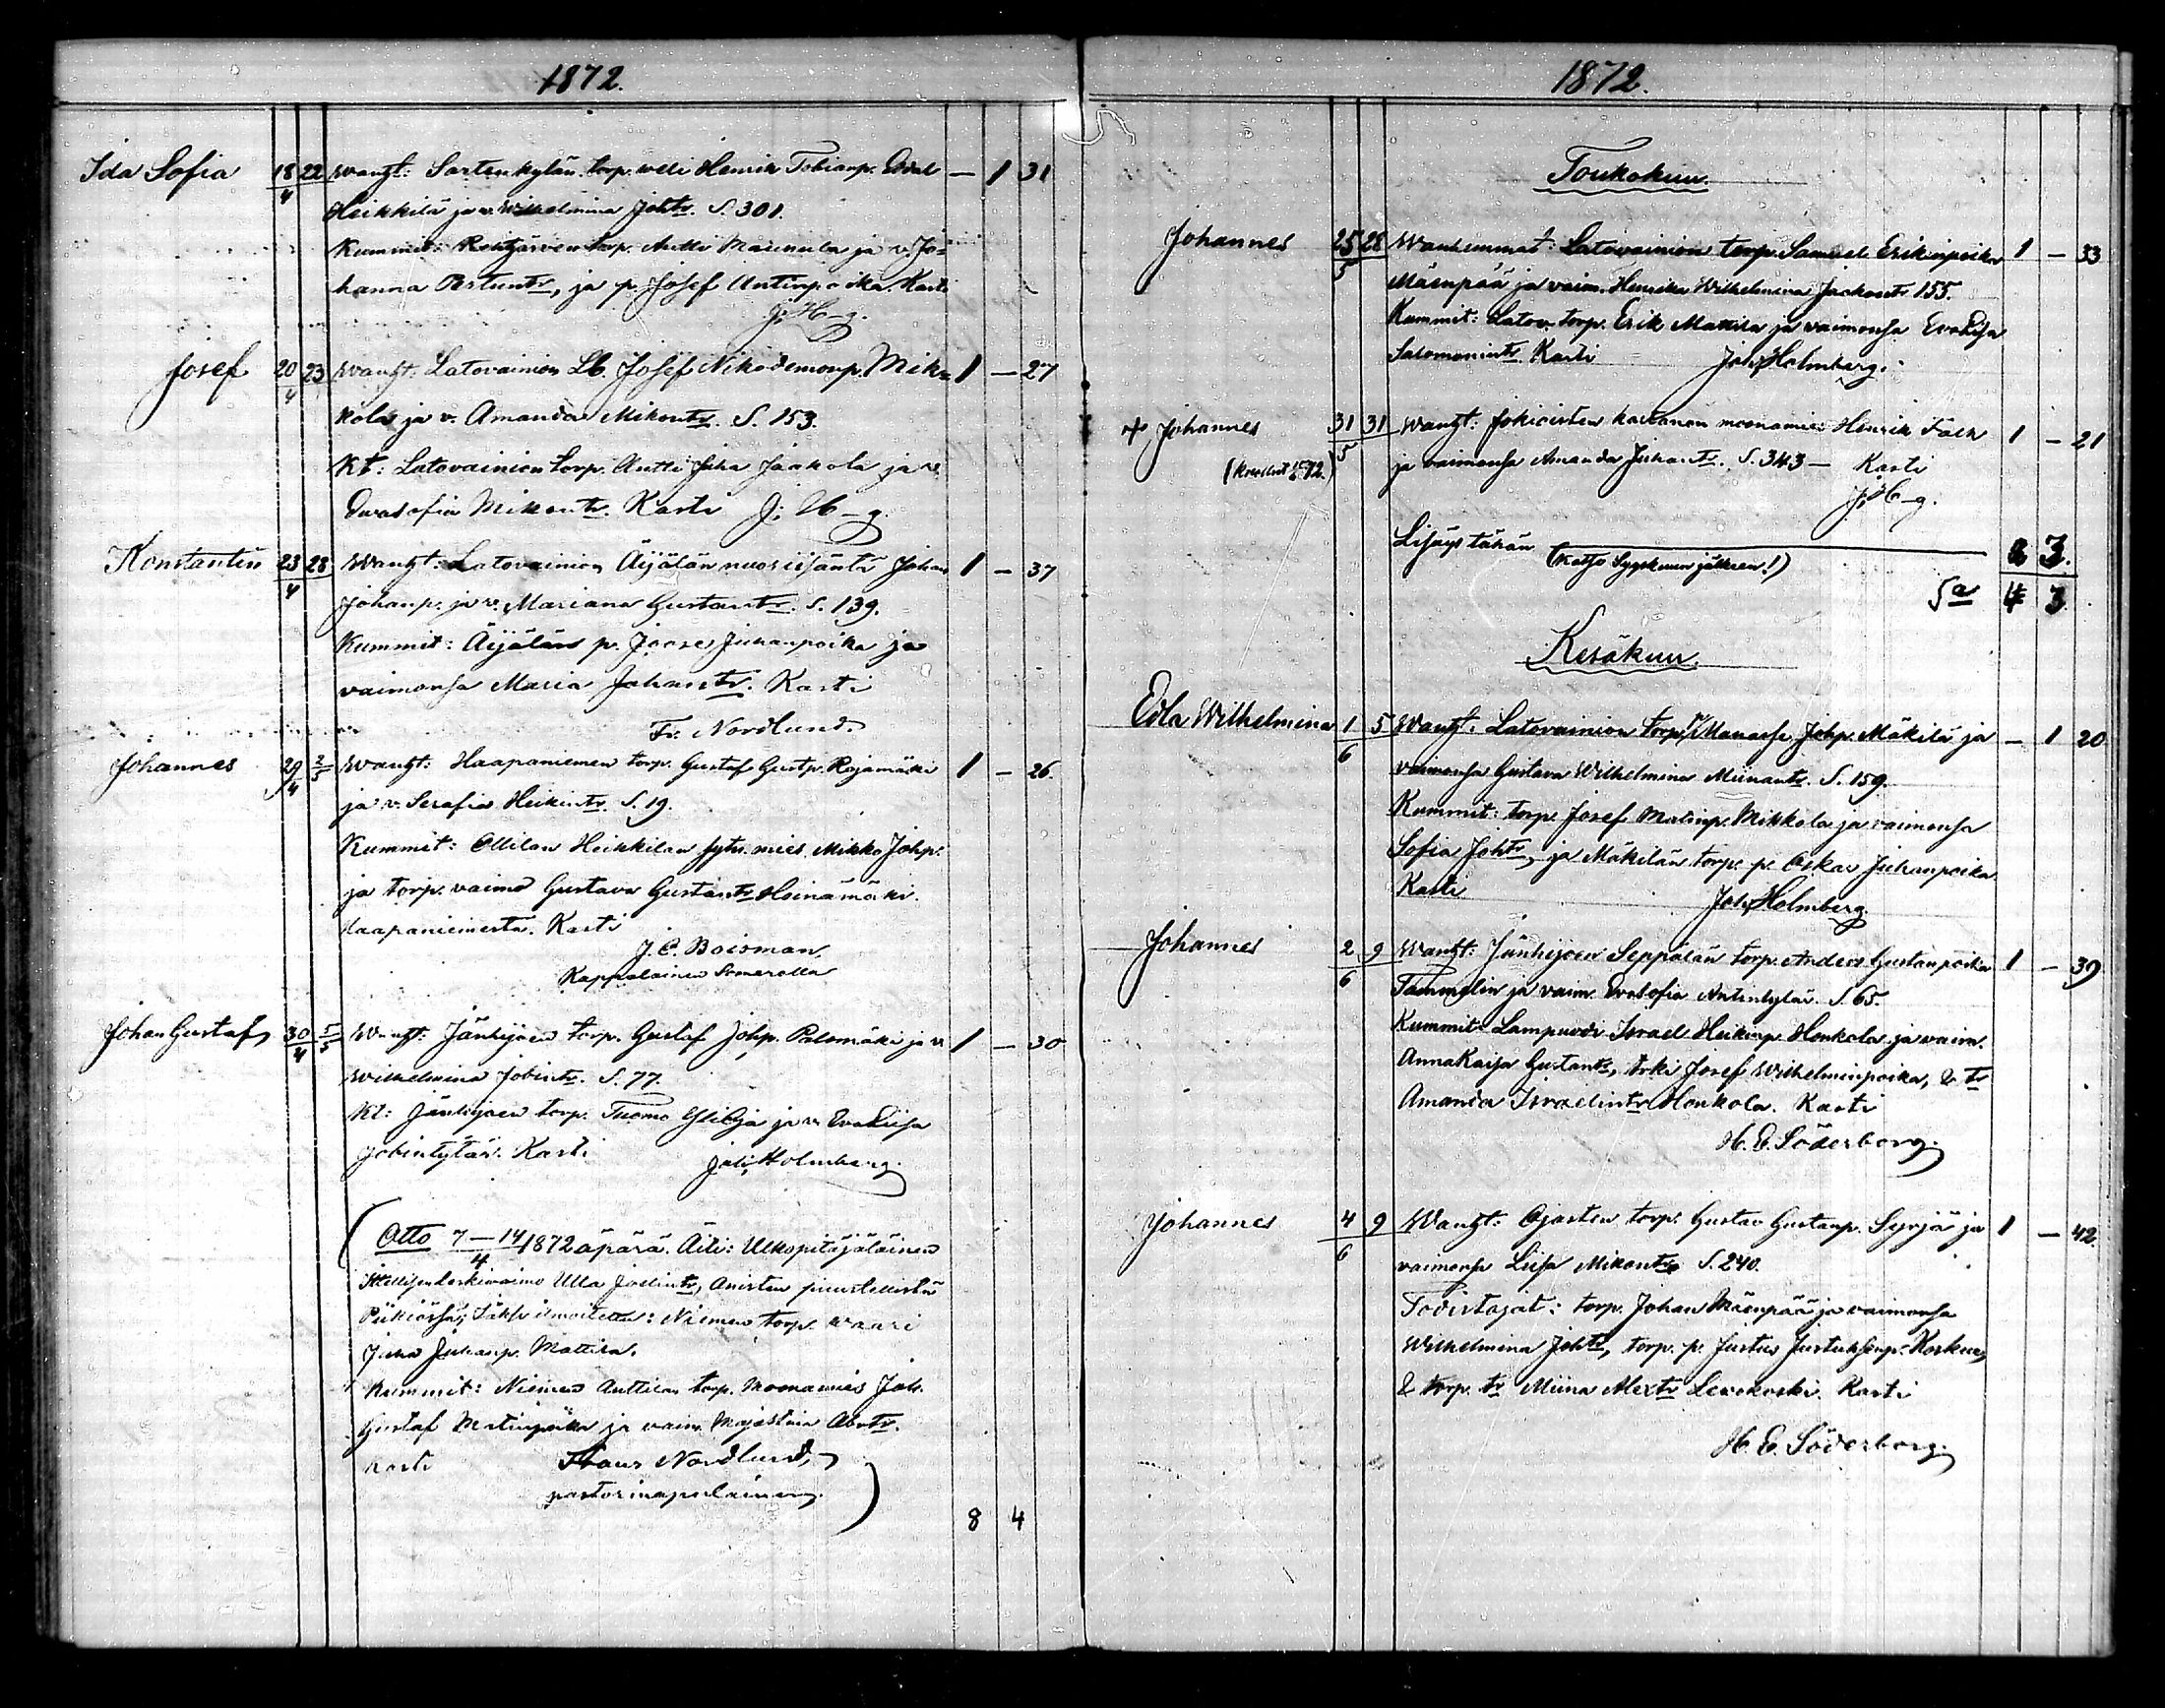 1872.
Ida Sofia 18/4 22 Wanht: Sartenkylän torp. weli Henrik Tobianp. — 1 31
Heikkilä ja v. Wilhelmina Joh:tr. S. 301.
Kummit: torp. Antti Maunula ja v. Jo=
hanna, ja p. Josef Antinpoika. Kasti
J. H—g.
Josef 20/4 23 Wanht: Latovainion Lb. Josef Nikodemonp. Mik= 1 — 27
kola ja v. Amanda Mikontr. S. 153.
Kt: Latovainion torp. Antti Juha Jaakola ja v.
Evasofia Mikontr. Kasti J. H—g.
Konstantin 23/4 28 Wanht: Latovainion Äijälän nuori isäntä Johan 1 — 37
Johanp. ja v. Mariana Gustantr. S. 139.
Kummit: Äijälän p. Joose Juhanpoika ja
vaimonsa Maria Johantr. Kasti
Fr. Nordlund.
Johannes 29/4 2/5 Wanht: Haapaniemen torp. Gustaf Gustp. Rajamäki 1 — 26.
ja v. Serafia Heikintr. S. 19.
Kummit: Ollilan Heikkilan sytn. mies Mikko Johp.
ja torp. vaimo Gustava Gustantr. Heinämäki
Haapaniemestä. Kasti
J. E. Boisman,
Kappalainen Somerolla
Johan Gustaf 30/4 5/5 Wanht: Jänhijoen torp. Gustaf Johp. Palomäki ja v. 1 — 30
Wilhelmina Jobintr. S. 77.
Kt: Jänhijoen torp. Tuomo Yliöja ja v. Eva Liisa
Jobintytär. Kasti Joh. Holmberg.
(Otto 7—14/4 1872 äpärä. Äiti: Ulkopitäjäläinen
leskivaimo Ulla Joelintr., Anisten puustellista
Piikiössä; ilmoitettu: Niemen torp. waari
Juha Juhanp. Mattila.
Kummit: Niemen Anttilan torp. Moonamies Joh.
Gustaf Matinpoika ja vaim. Majastina Abr.tr.
Kasti Frans Nordlund,
pastorinapulainen.)
8 4
1872.
Toukokuu.
Johannes 25/5 28 Wanhemmat: Latovainion torp. Samuel Erikinpoika 1 — 33
Mäenpää ja vaim. Henrika Wilhelmina Jackontr. 155.
Kummit: Latov. torp. Erik Mattila ja vaimonsa Eva Lisa
Salomonintr. Kasti Joh. Holmberg.
+ Johannes 31/5 31 Wanht: Jokioisten kartanon moonamies Henrik Falk 1 — 21
(kuollut 72.) ja vaimonsa Amanda Juhantr. S. 343— Kasti
J. H—g.
Lisäys tähän (Katso Syyskuun jälkeen!) 2 3.
Sa 4 3
Kesäkuu.
Edla Wilhelmina 1/6 5 Wanht. Latovainion torp. Manasse Johp. Mäkilä ja — 1 20
vaimonsa Gustava Wilhelmina Miinantr. S. 159.
Kummit: torp. Josef Matinp. Mikkola ja vaimonsa
Sofia Johtr., ja Mäkilän torp. p. Oskar Juhanpoika
Kasti Joh. Holmberg
Johannes 2/6 9 Wanht: Jänhijoen Seppälän torp. Anders Gustanpoika 1 — 39
Tammelin ja vaim. Evasofia Antintytär. S. 65.
Kummit: Lampuodi Israel Heikinp. Honkola ja vaim.
Anna Kaisa Gustantr., trki Josef Wilhelminpoika, & tr
Amanda Israelintr. Honkola. Kasti
H. E. Söderborg.
Johannes 4/6 9 Wanht: Ojasten torp. Gustav Gustanp. Syrjä ja 1 — 42.
vaimonsa Liisa Mikontr. S. 240.
Todistajat: torp. Johan Mäenpää ja vaimonsa
Wilhelmina Johtr., torp. p. Justus Justuksenp. Koskue,
& torp. tr Miina Alextr. Levekoski. Kasti
H. E. Söderborg.